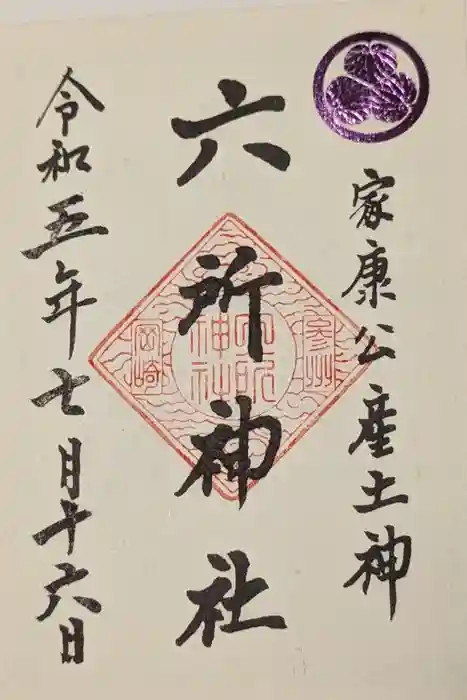 家康公産土神
六所神社
参州
六所神社
岡崎
令和五年七月十六日